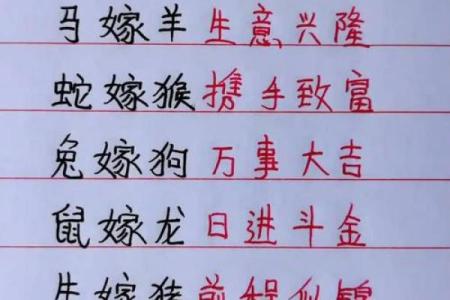 马嫁羊 生意兴隆
蛇嫁猴 携手致富
兔嫁狗 万事大吉
鼠嫁龙 日进斗金
牛嫁猪 前程似锦